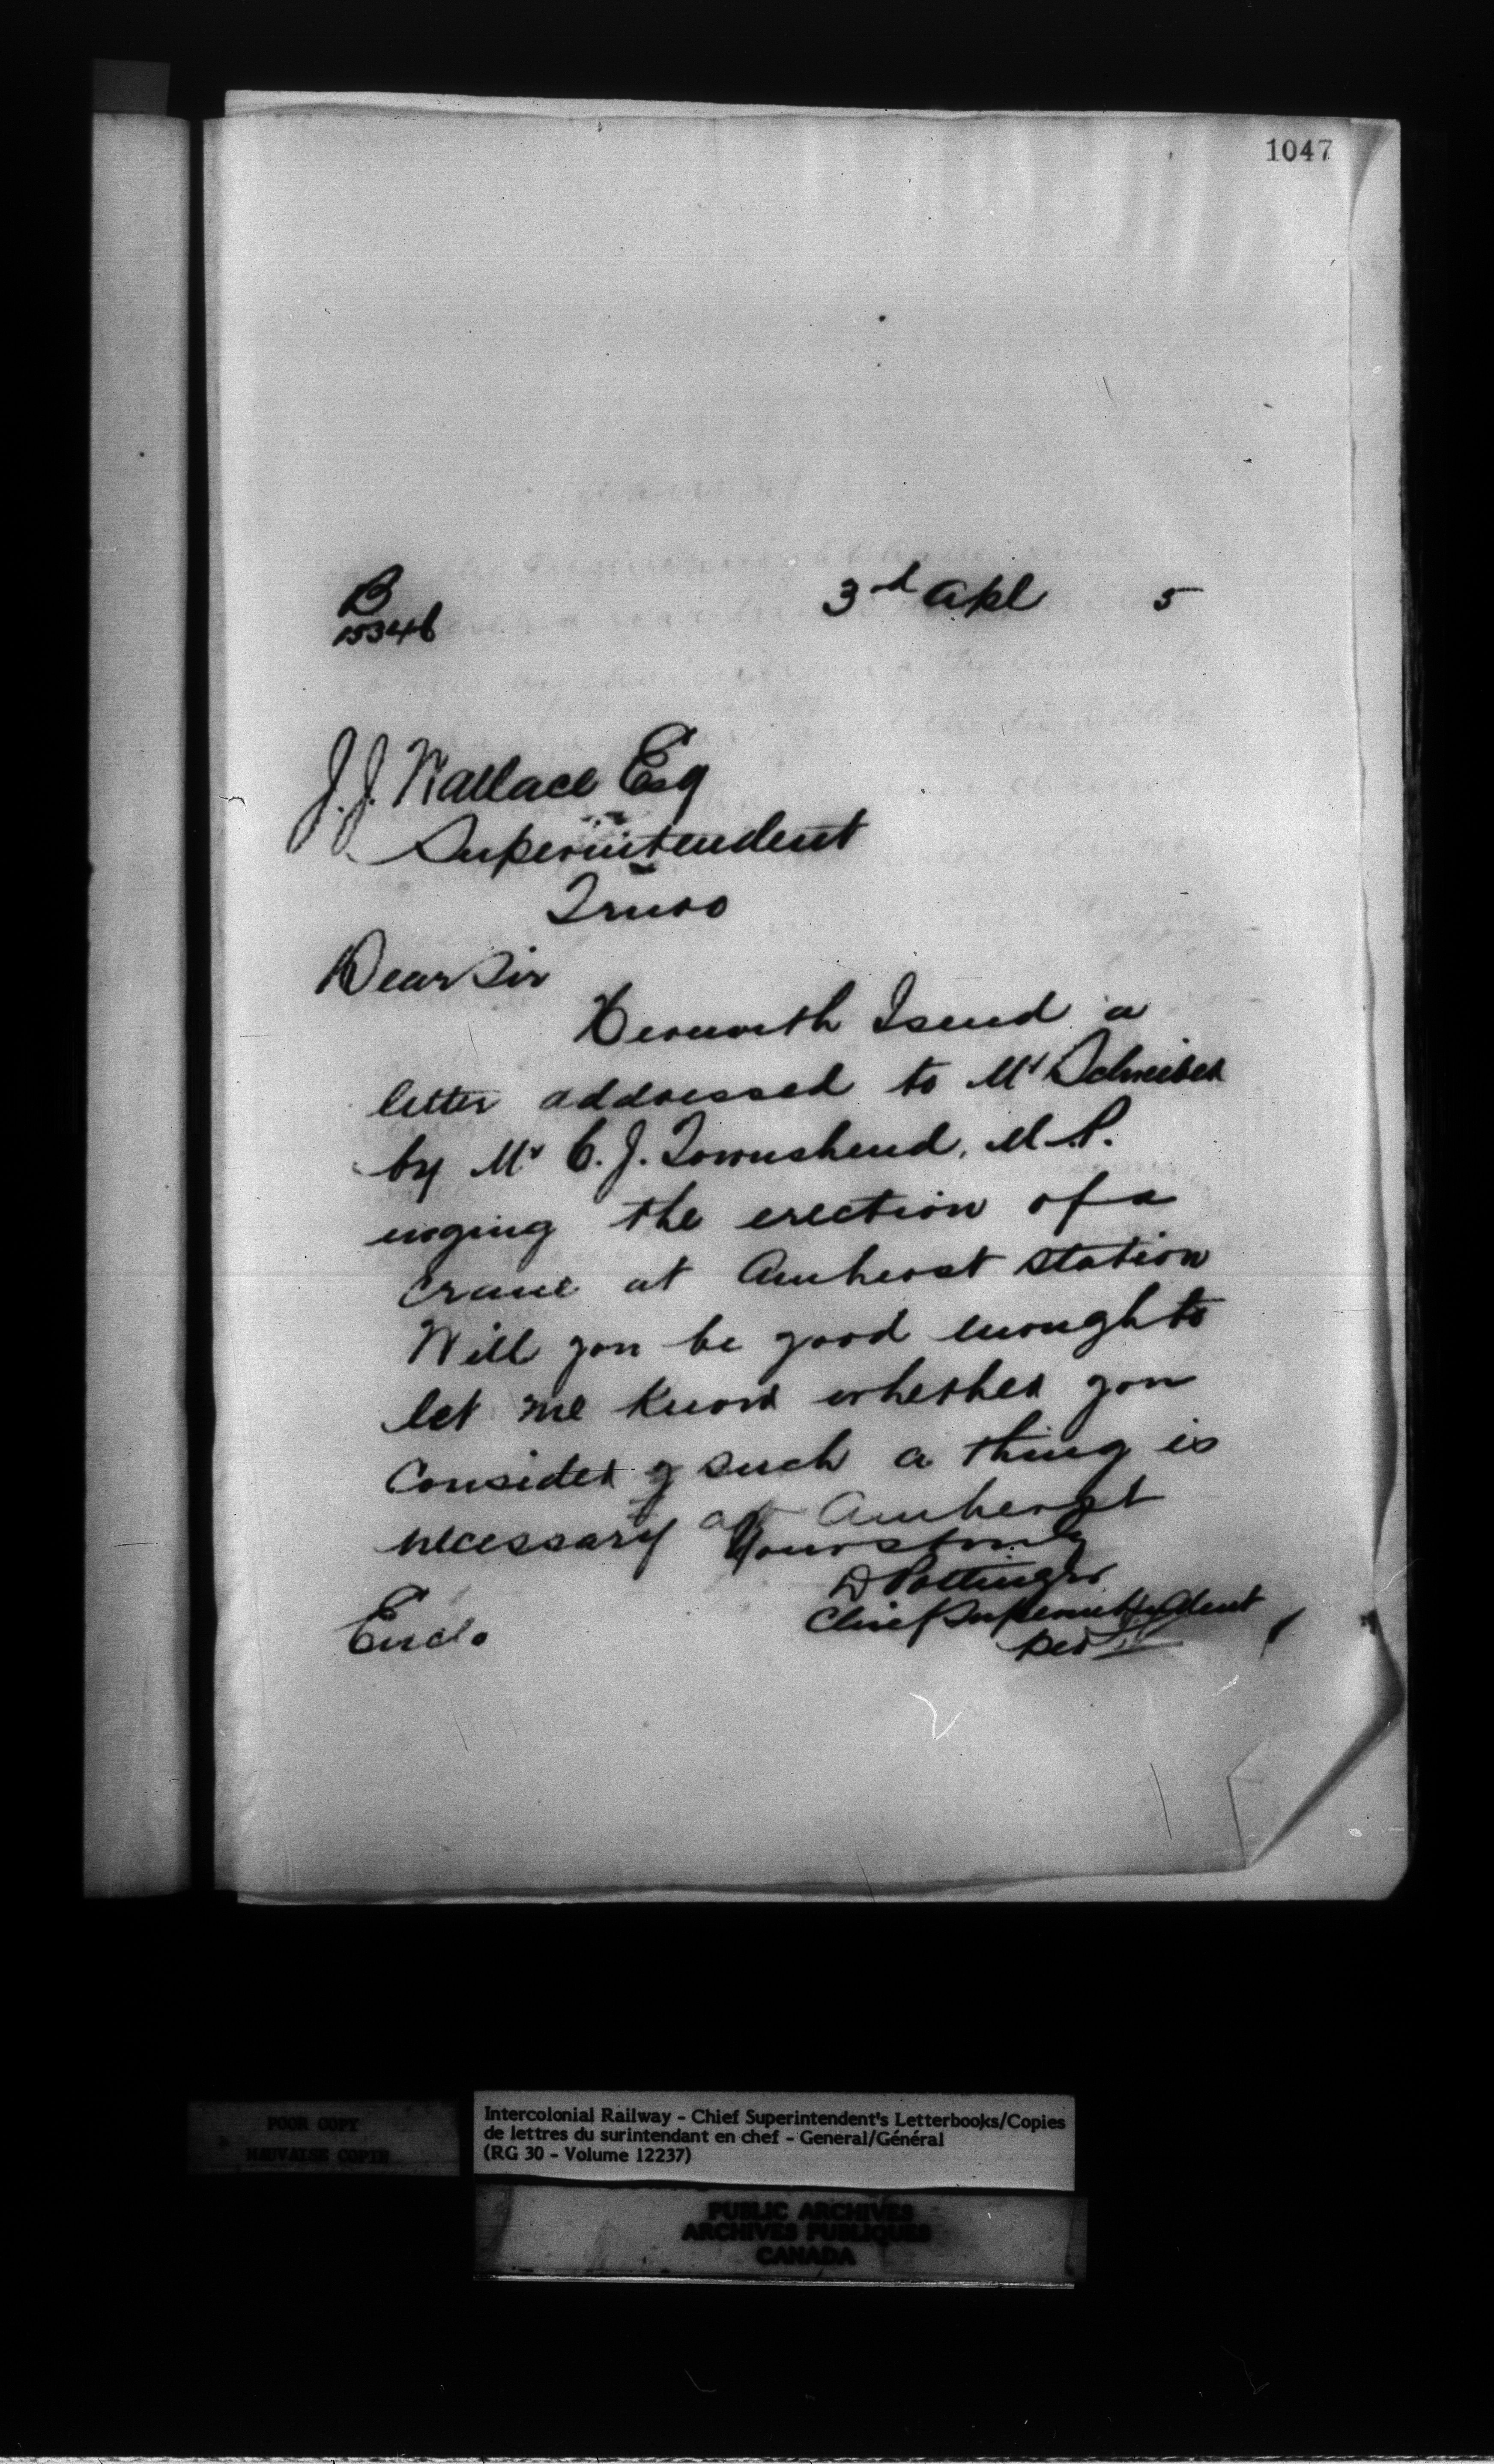 1047
B
15346
3rd Apl 5
J. J. Wallace Esq
Superintendent
Truro
Dear Sir
Herewith I send a
letter addressed to Mr Schreiber
by Mr C. J. Townshend, M.P.
urging the erection of a
crane at Amherst station
Will you be good enough to
let me know whether you
consider such a thing is
necessary at Amherst
Yours truly
D Pottinger
Chief Superintendent
per
Encl.
POOR COPY
MAUVAISE COPIE
Intercolonial Railway - Chief Superintendent's Letterbooks/Copies
de lettres du surintendant en chef - General/Général
(RG 30 - Volume 12237)
PUBLIC ARCHIVES
ARCHIVES PUBLIQUES
CANADA